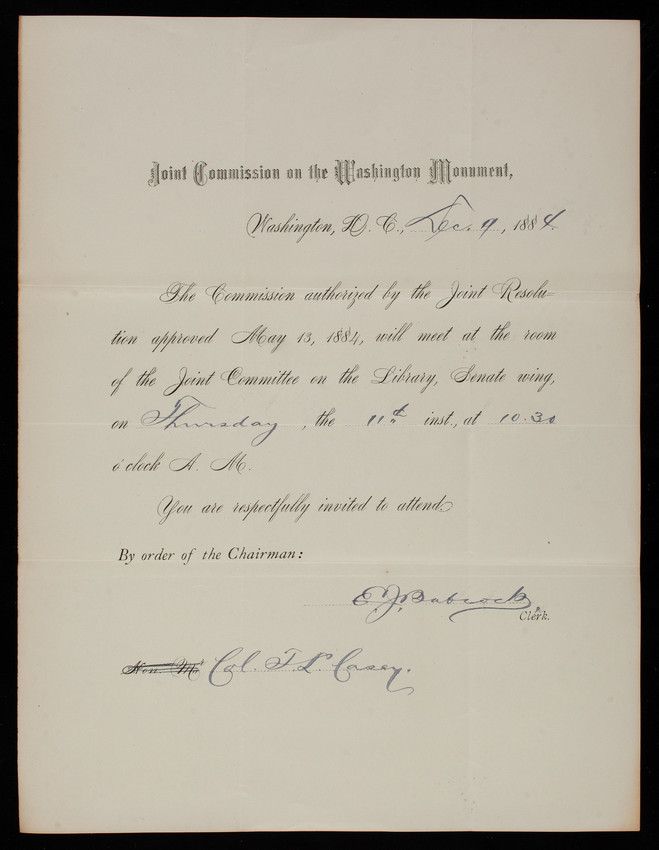 Joint Commission on the Washington Monument,
Washington, D. C., Dec. 9, 1884
The Commission authorized by the Joint Resolu-
tion approved May 13, 1884, will meet at the room
of the Joint Committee on the Library, Senate wing,
on Thursday, the 11th inst., at 10.30
o'clock A. M.
You are respectfully invited to attend.
By order of the Chairman:
E. J. Babcock
Clerk.
Hon. Mr Col. T. L. Casey.